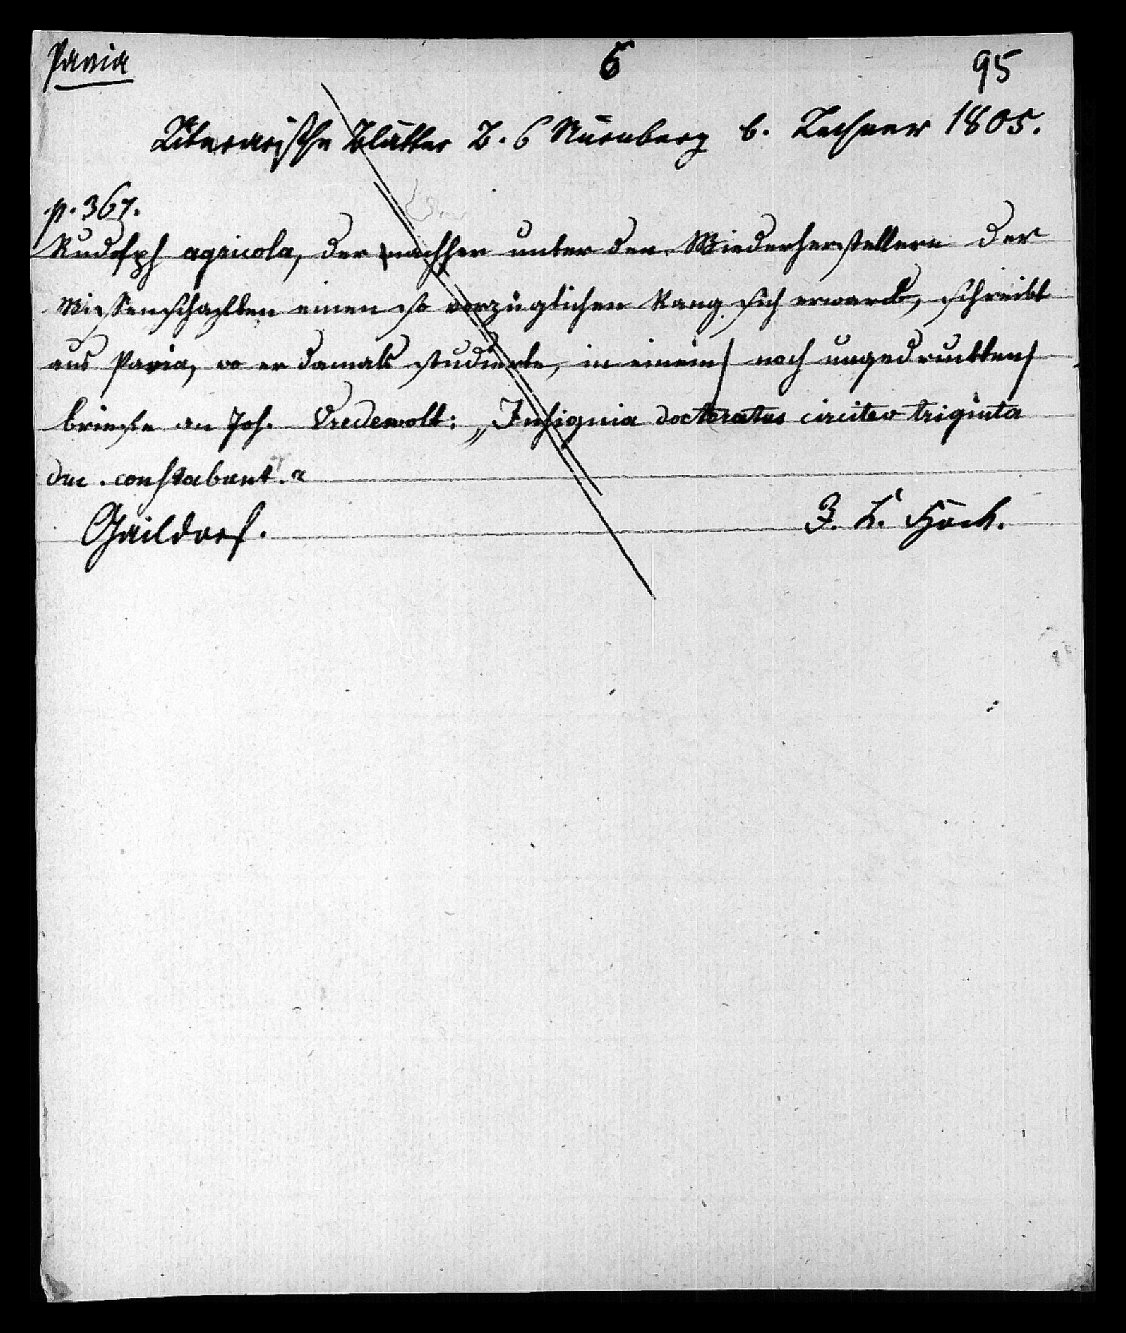 Pavia
6
95
Literarische Blätter B. 6 Nürnberg b. Lechner 1805.
p. 367.
Rudolph agricola, der nachher unter den Wiederherstellern der
Wissenschaften einen so vorzüglichen Rang sich erwarb, schreibt
aus Pavia, wo er damals studierte, in einem noch ungedruckten
briefe an Joh. Vredewolt: „Insignia doctoratus circiter triginta
duc. constabunt."
Gaildorf. F. L. Höck.